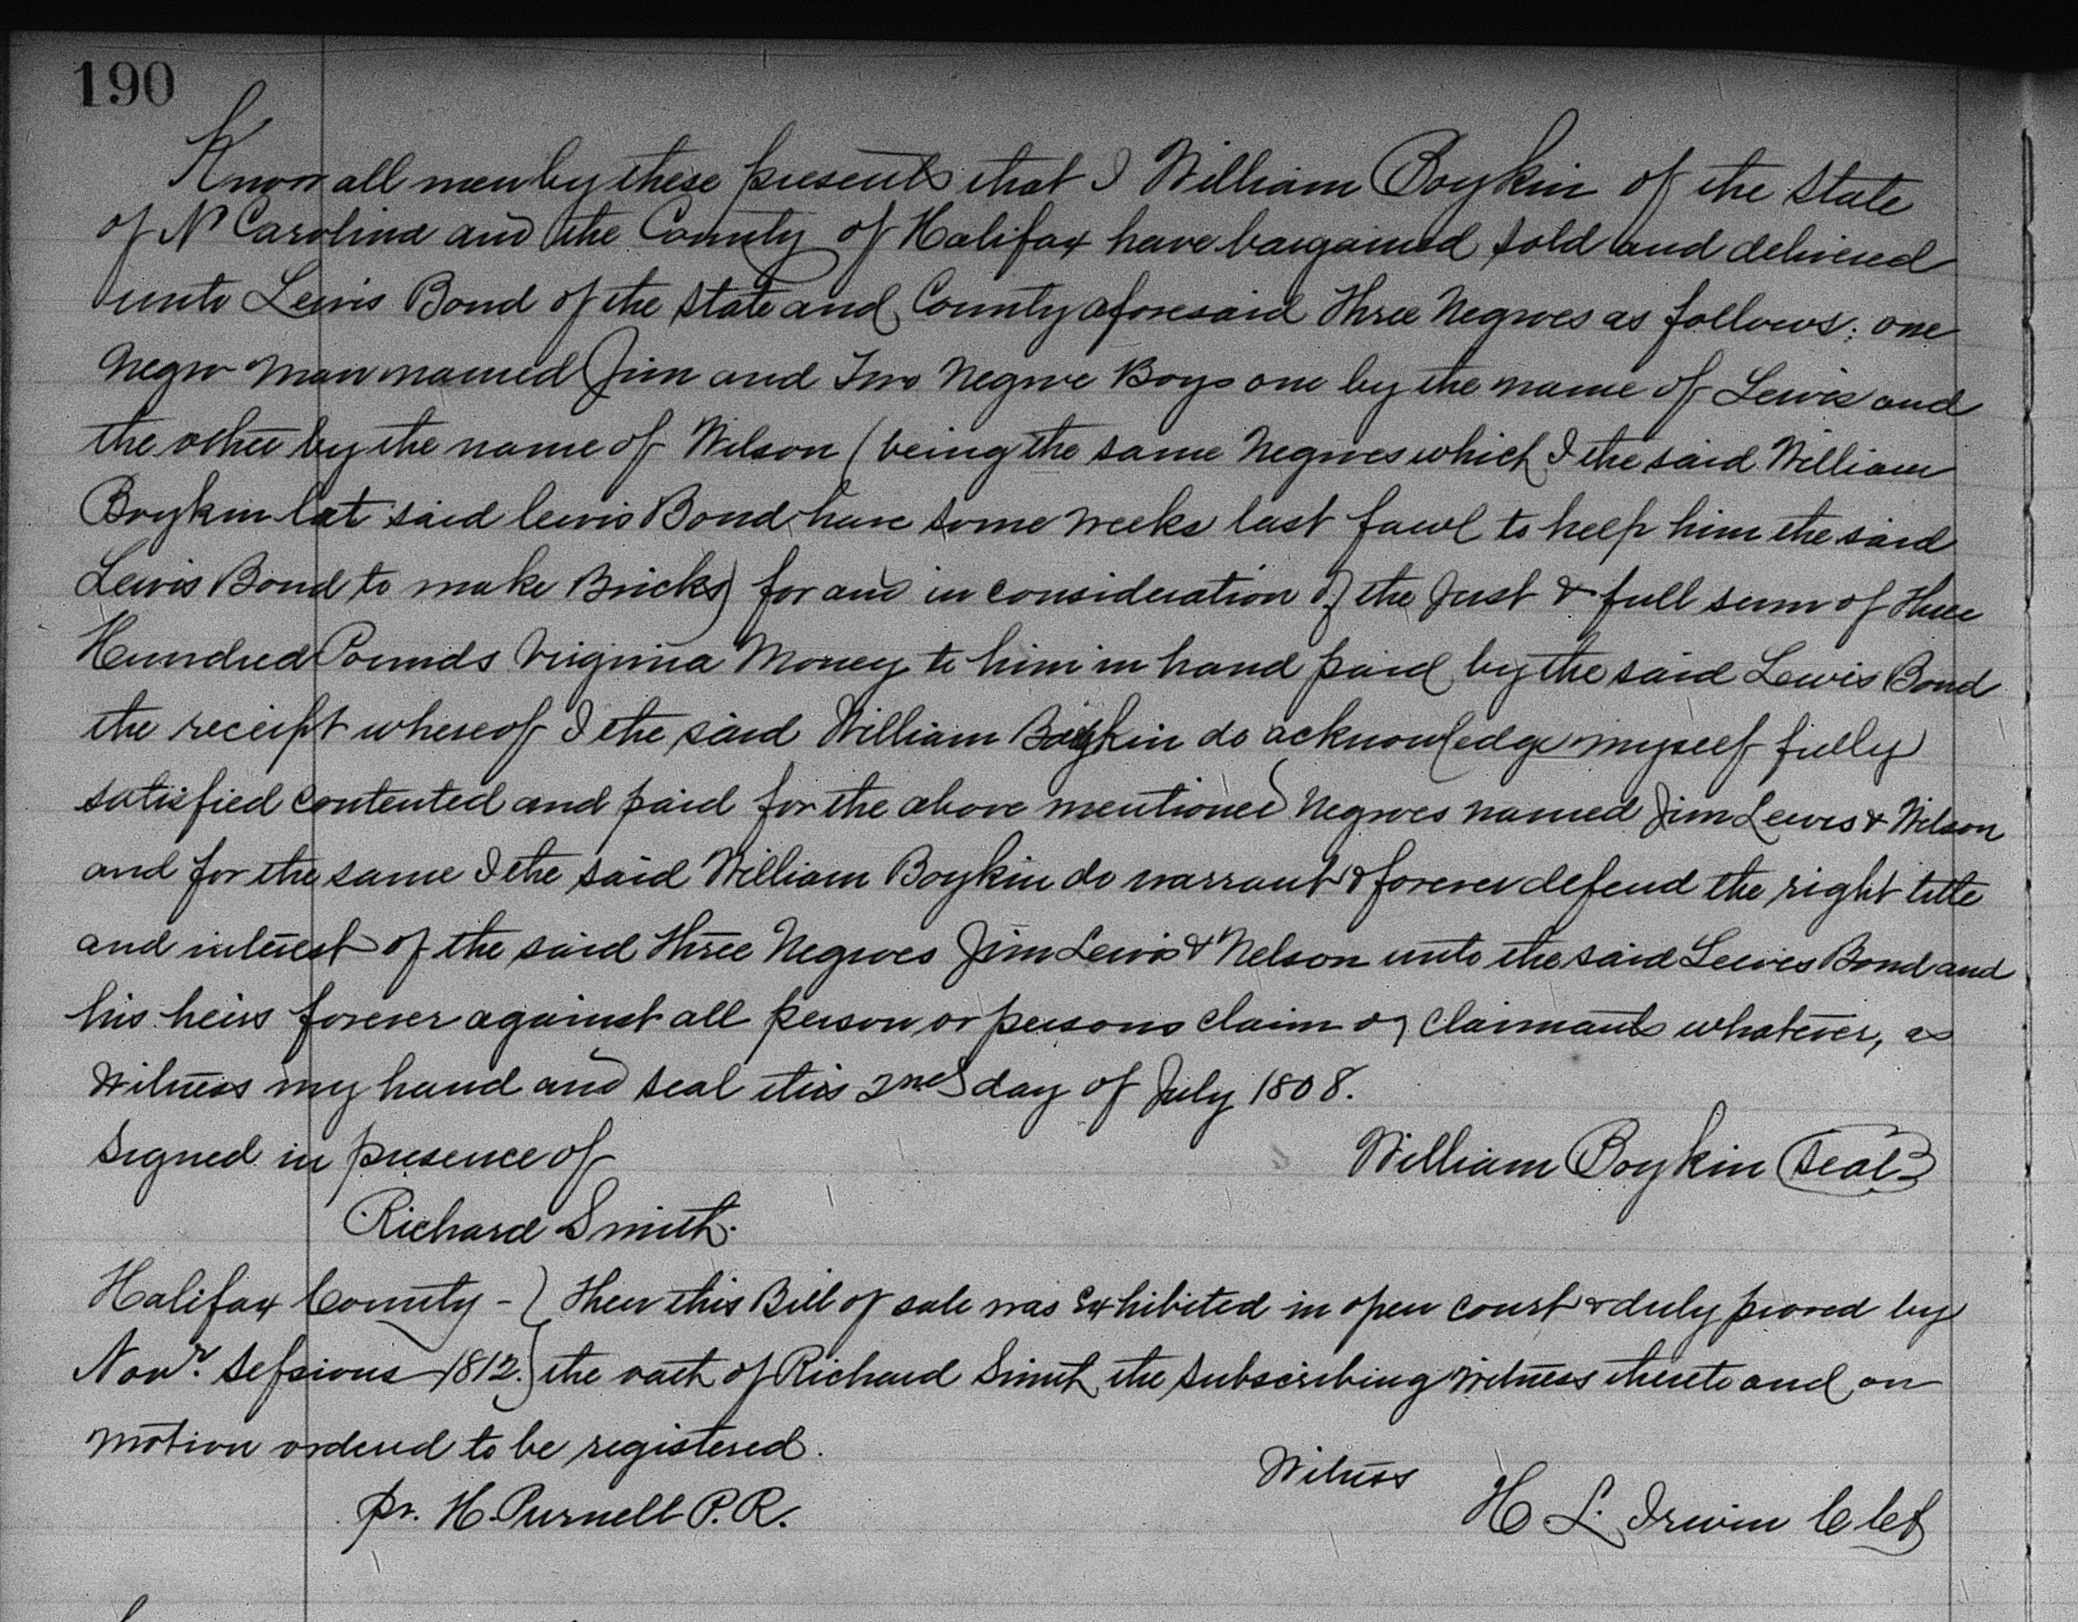 190
Know all men by these presents that I William Boykin of the State
of N Carolina and the County of Halifax have bargained sold and delivered
unto Lewis Bond of the State and County aforesaid three Negroes as follows; one
Negro man named Jim and Two Negroe Boys one by the name of Lewis and
the other by the name of Wilson (being the same Negroes which I the said William
Boykin lat said lewis Bond have some weeks last fawl to help him the said
Lewis Bond to make Bricks) for and in consideration of the Just & full sum of three
Hundred Pounds Virginia Money to him in hand paid by the said Lewis Bond
the receipt whereof I the said William Boykin do acknowledge myself fully
satisfied contented and paid for the above mentioned Negroes named Jim Lewis & Wilson
and for the same I the said William Boykin do warrant & forever defend the right title
and interest of the said three Negroes Jim Lewis & Nelson unto the said Lewis Bond and
his heirs forever against all person or persons claim or claimants whatever, as
Witness my hand and seal this 2nd day of July 1808.
Signed in presence of
William Boykin (Seal)
Richard Smith.
Halifax County - } Then this Bill of sale was Exhibited in open court & duly proved by
Novr. Sessions 1812. } the oath of Richard Smith the subscribing Witness thereto and on
motion ordend to be registered.
Witness
pr. H. Purnell P.R.
H L. Irwin